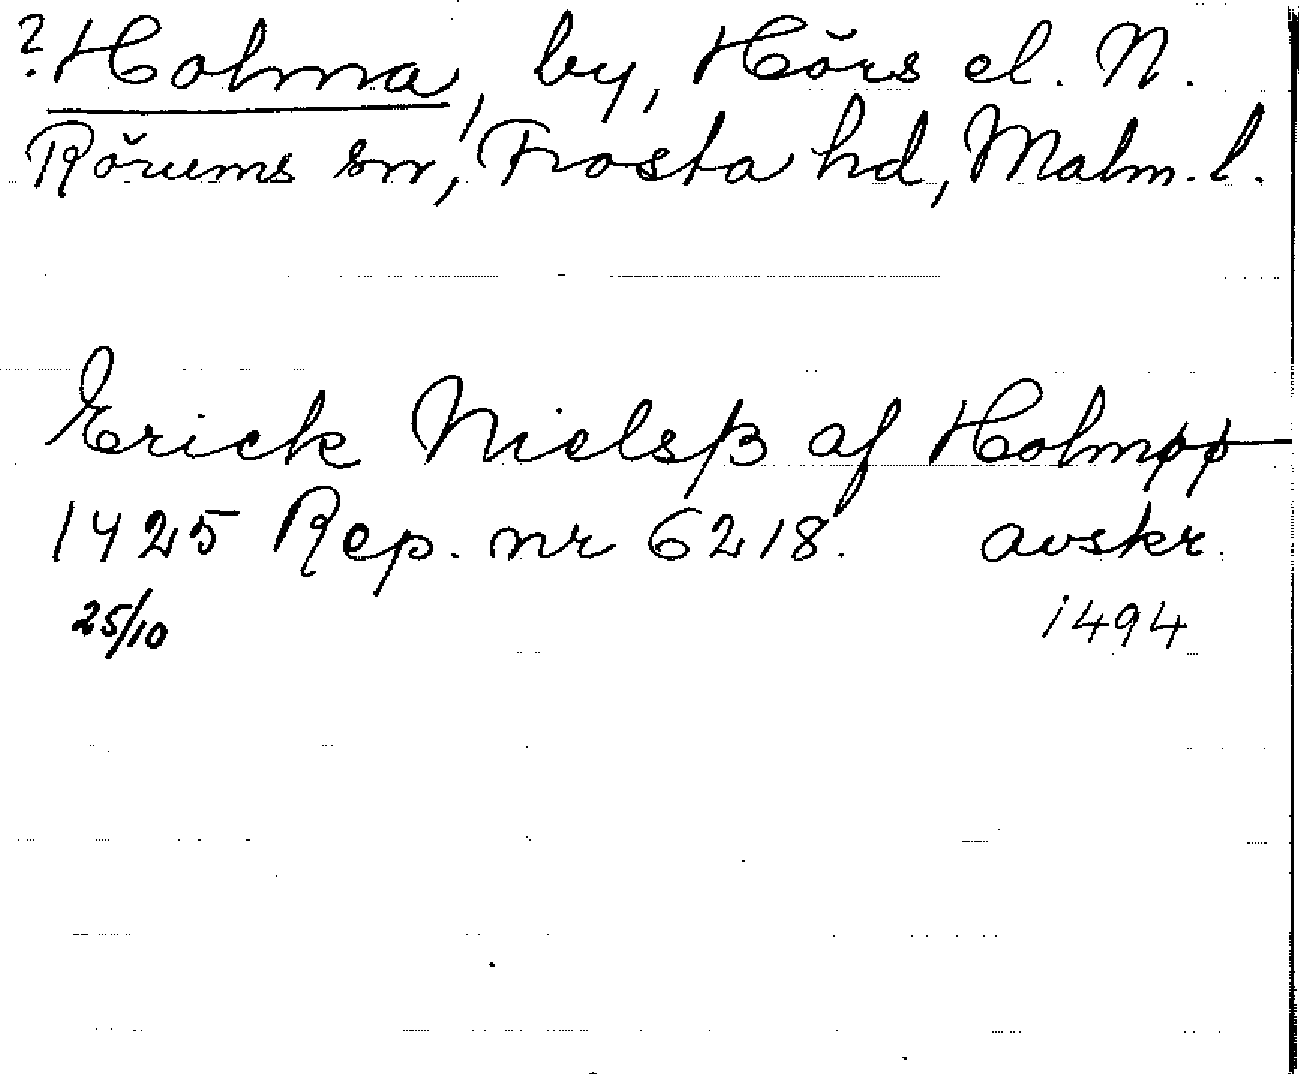 ? Holma, by, Hörs el. N.
Rörums sn, Frosta hd, Malm. l.
Erick Nielsß af Holmøø
1425 Rep. nr 6218. avskr.
25/10 1494